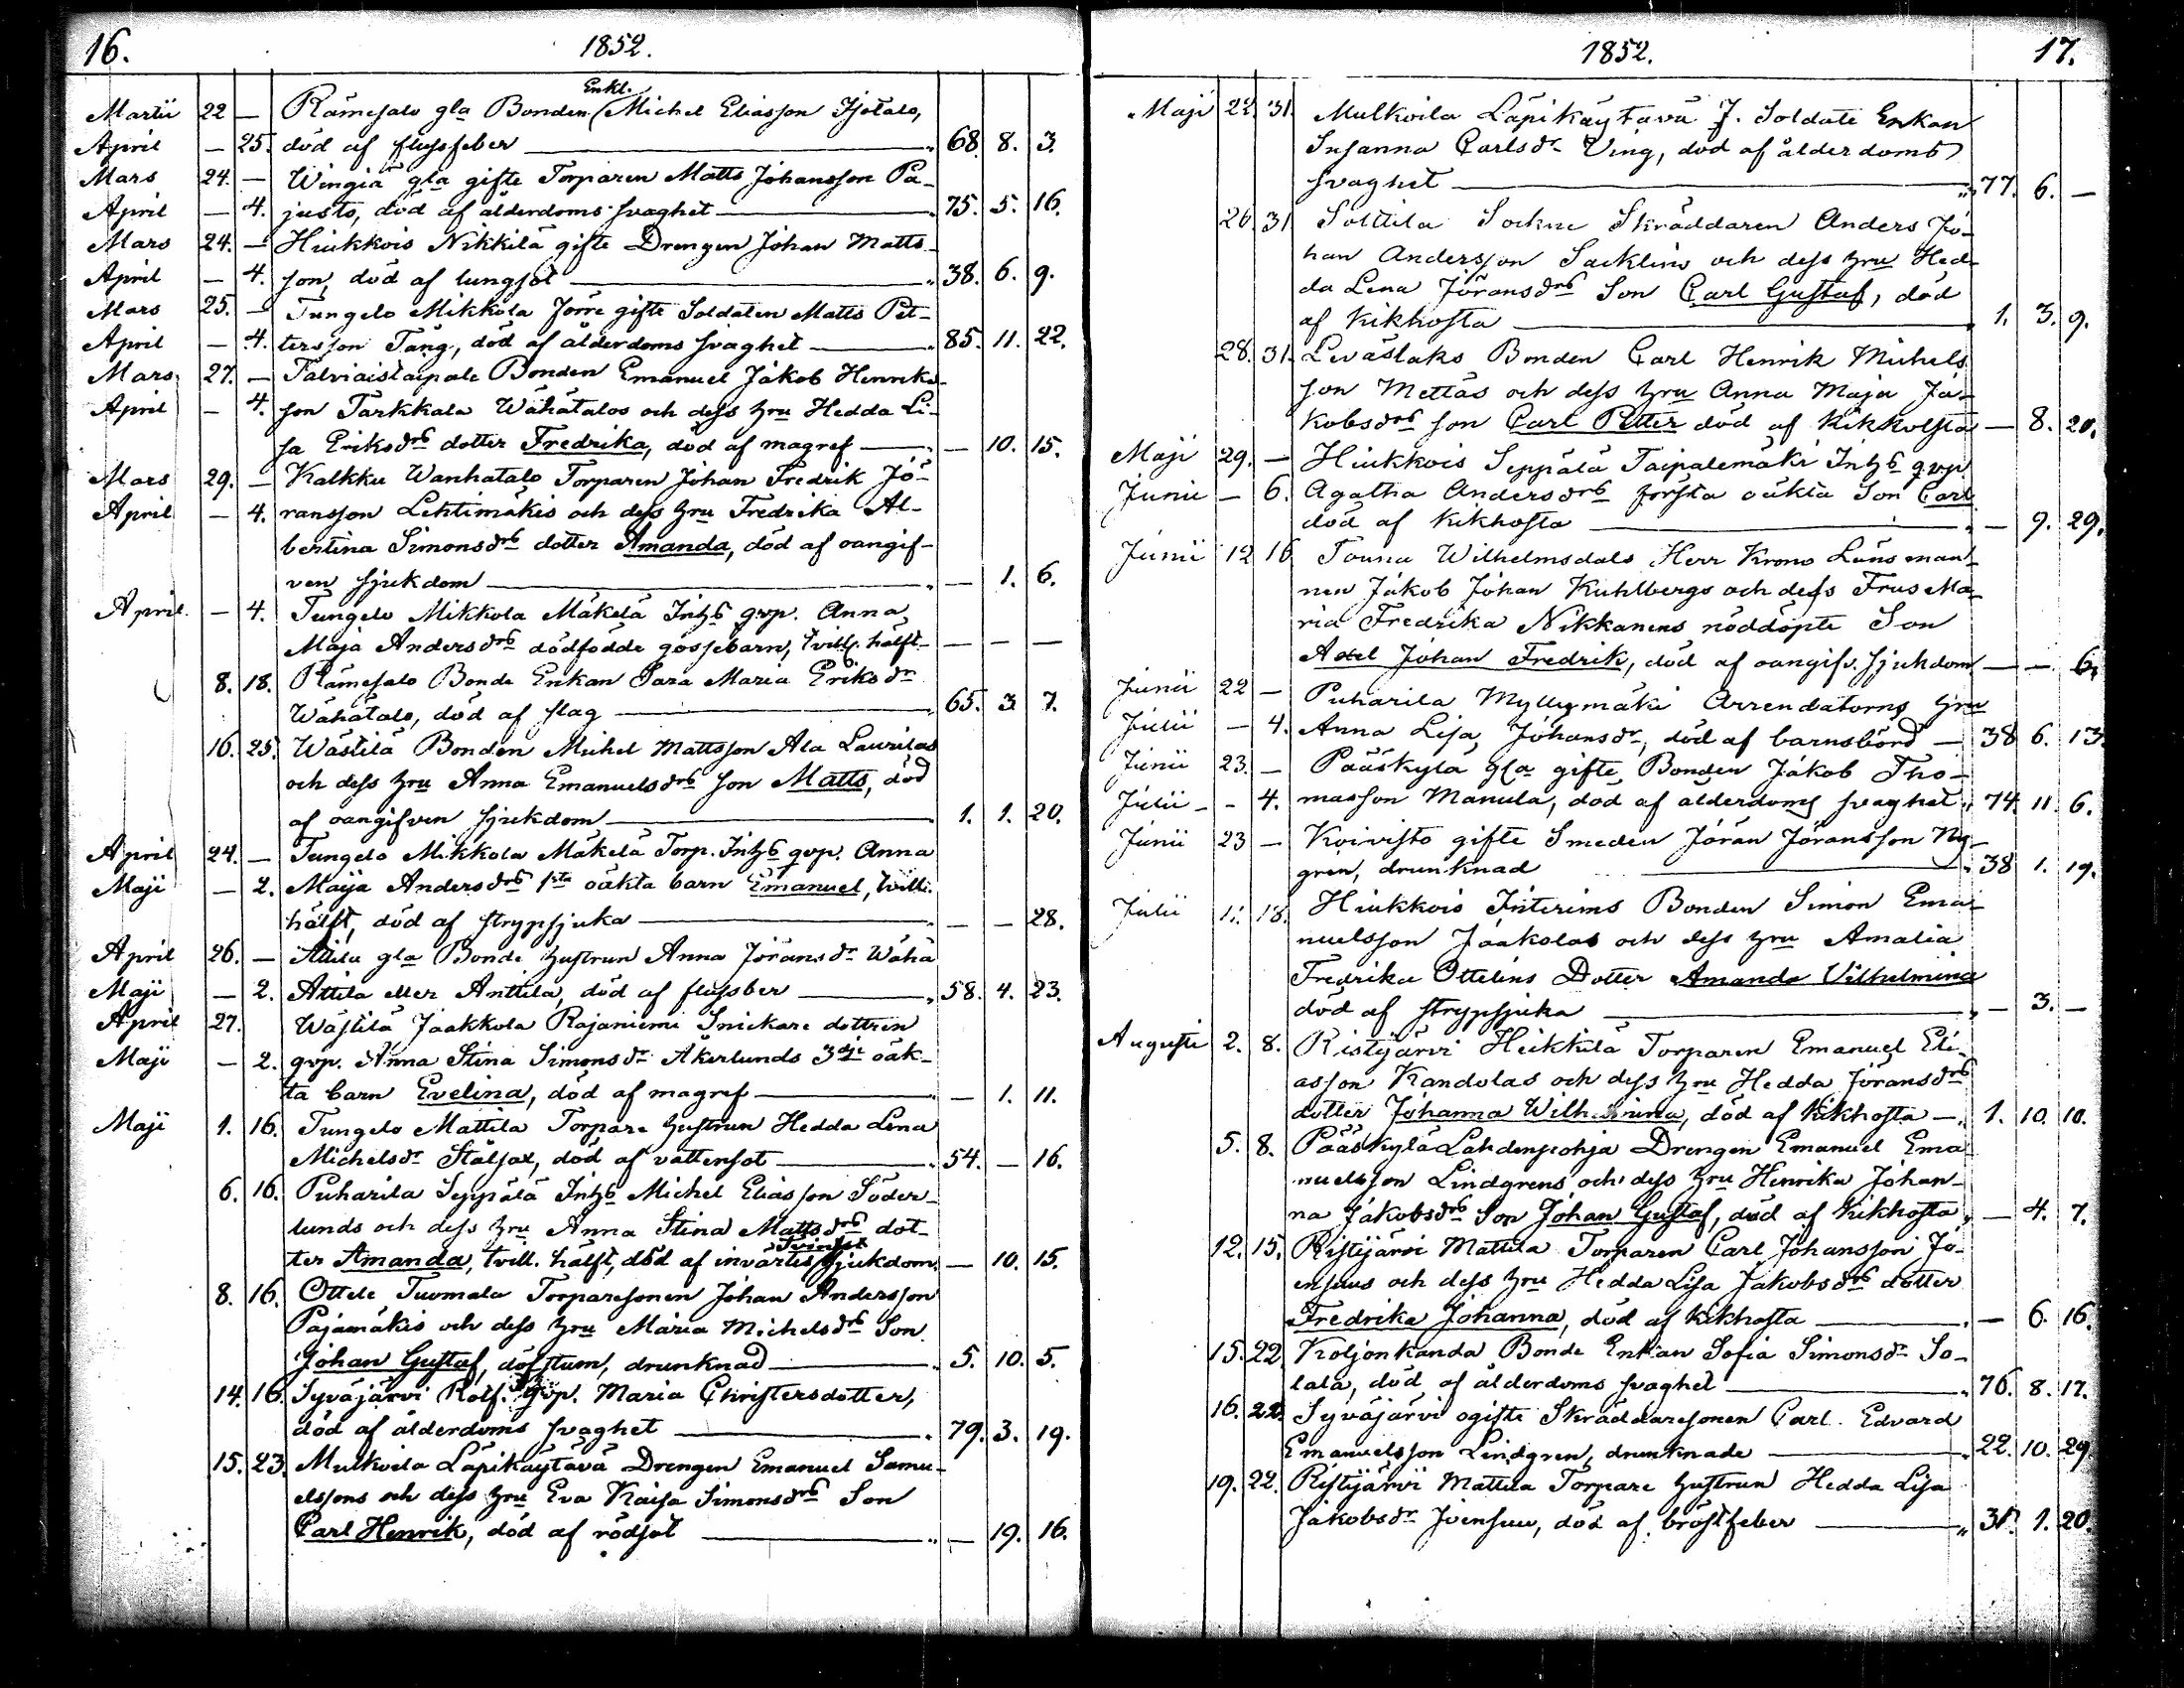 16. 1852.
Enkl.
Martii 22 — Rämesalo gla Bonden (Michel Eliasson Isotalo,
April — 25. död af flussfeber — 68. 8. 3.
Mars 24. — Wingiä gla gifte Torparen Matts Johansson Pa-
April — 4. justo, död af ålderdoms svaghet — 75. 5. 16.
Mars 24. — Hiukkois Nikkilä gifte Drengen Johan Matts-
April — 4. son, död af lungsot — 38. 6. 9.
Mars 25. — Tungelo Mikkola förre gifte Soldaten Matts Pet-
April — 4. tersson Tång, död af ålderdoms svaghet — 85. 11. 22.
Mars 27. — Talviaistaipale Bonden Emanuel Jakob Henriks-
April — 4. son Tarkkala Wähätalos och dess hru Hedda Li-
sa Eriksdrs dotter Fredrika, död af magref — — 10. 15.
Mars 29. — Kalkku Wanhatalo Torparen Johan Fredrik Jö-
April — 4. ransson Lehtimäkis och dess hru Fredrika Al-
bertina Simonsdrs dotter Amanda, död af oangif-
ven sjukdom — — 1. 6.
April. — 4. Tungelo Mikkola Mäkelä Inhs qvp. Anna
Maja Andersdrs dödfödde gossebarn, tvill. hälft — — —
8. 18. Rämesalo Bonde Enkan Sara Maria Eriksdr
Wähätalo, död af slag — 65. 3. 7.
16. 25. Wästilä Bonden Michel Mattsson Ala Laurilas
och dess hru Anna Emanuelsdrs son Matts, död
af oangifven sjukdom — 1. 1. 20.
April 24. — Tungelo Mikkola Mäkelä Torp. Inhs qvp. Anna
Maji — 2. Maija Andersdrs 1sta oäkta barn Emanuel, tvill.
hälft, död af strypsjuka — — — 28.
April 26. — Attila gla Bonde hustrun Anna Jöransdr Wähä
Maji — 2. Attila eller Anttila, död af flussber — 58. 4. 23.
April 27. Wästilä Jaakkola Rajaniemi Snickare dottren
Maji — 2. qvp. Anna Stina Simonsdr Åkerlunds 3dje oäk-
ta barn Evelina, död af magref — — 1. 11.
Maji 1. 16. Tungelo Mattila Torpare hustrun Hedda Lena
Michelsdr Stålsax, död af vattensot — 54. — 16.
6. 16. Puharila Seppälä Inhs Michel Eliasson Söder-
lunds och dess hru Anna Stina Mattsdrs dot-
ter Amanda, tvill. hälft, död af invärtes sjukdom. — 10. 15.
8. 16. Ottele Tuomala Torparesonen Johan Andersson
Pajamäkis och dess hru Maria Michelsdrs Son
Johan Gustaf, döfstum, drunknad — 5. 10. 5.
14. 16. Syväjärvi Rolf. qvp. Maria Christersdotter,
död af ålderdoms svaghet — 79. 3. 19.
15. 23. Mulkoila Läpikäytävä Drengen Emanuel Samu-
elssons och dess hru Eva Kaisa Simonsdrs Son
Carl Henrik, död af rödsot — — 19. 16.
1852. 17.
Maji 22. 31. Mulkoila Läpikäytävä f. Soldate Enkan
Susanna Carlsdr Ving, död af ålderdoms
svaghet — 77. 6. —
26. 31 Solttila Sockne Skräddaren Anders Jo-
han Andersson Sacklins och dess hru Hed-
da Lena Jöransdrs Son Carl Gustaf, död
af Kikhosta — 1. 3. 9.
28. 31. Leväslaks Bonden Carl Henrik Michels
son Mettäs och dess hru Anna Maja Ja-
kobsdrs son Carl Petter död af Kikhosta — 8. 20.
Maji 29. — Hiukkois Seppälä Taipalemäki Inhs qvp
Junii — 6. Agatha Andersdrs första oäkta Son Carl
död af Kikhosta — — 9. 29.
Junii 12 16 Touna Wilhelmsdals Herr Krono Länsman-
nen Jakob Johan Kuhlbergs och dess Frus Ma-
ria Fredrika Nikkanens nöddöpte Son
Axel Johan Fredrik, död af oangifv. sjukdom. — — 6.
Junii 22 — Puharila Myllymäki Arrendatorns hru
Julii — 4. Anna Lisa, Johansdr, död af barnsbörd — 38 6. 13.
Junii 23. — Pääskylä gla gifte Bonden Jakob Tho-
Julii — 4. masson Manula, död af ålderdoms svaghet 74. 11 6.
Junii 23 — Koivisto gifte Smeden Jöran Jöransson Ny-
gren, drunknad — 38 1. 19.
Julii 11. 18. Hiukkois Interims Bonden Simon Ema-
nuelsson Jaakolas och dess hru Amalia
Fredrika Ottelins Dotter Amanda Vilhelmina
död af strypsjuka — — 3. —
Augusti 2. 8. Ristijärvi Heikkilä Torparen Emanuel Eli-
asson Kandolas och dess hru Hedda Jöransdrs
dotter Johanna Wilhelmina, död af Kikhosta — 1. 10. 10.
5. 8. Pääskylä Lahdenpohja Drengen Emanuel Ema-
nuelsson Lindgrens och dess hru Henrika Johan-
na Jakobsdrs Son Johan Gustaf, död af Kikhosta — 4. 7.
12. 15. Ristijärvi Mattila Torparen Carl Johansson Jo-
ensuus och dess hru Hedda Lisa Jakobsdrs dotter
Fredrika Johanna, död af kikhosta — — 6. 16.
15. 22 Koljonkanda Bonde Enkan Sofia Simonsdr So-
lala, död af ålderdoms svaghet — 76. 8. 17.
16. 22. Syväjärvi ogifte Skräddaresonen Carl Edvard
Emanuelsson Lindgren, drunknade — 22. 10. 29.
19. 22. Ristijärvi Mattila Torpare hustrun Hedda Lisa
Jakobsdr Joensuu, död af bröstfeber — 31. 1. 20.